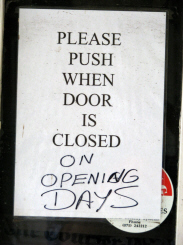 PLEASE
PUSH
WHEN
DOOR
IS
CLOSED
ON
OPENING
DAYS